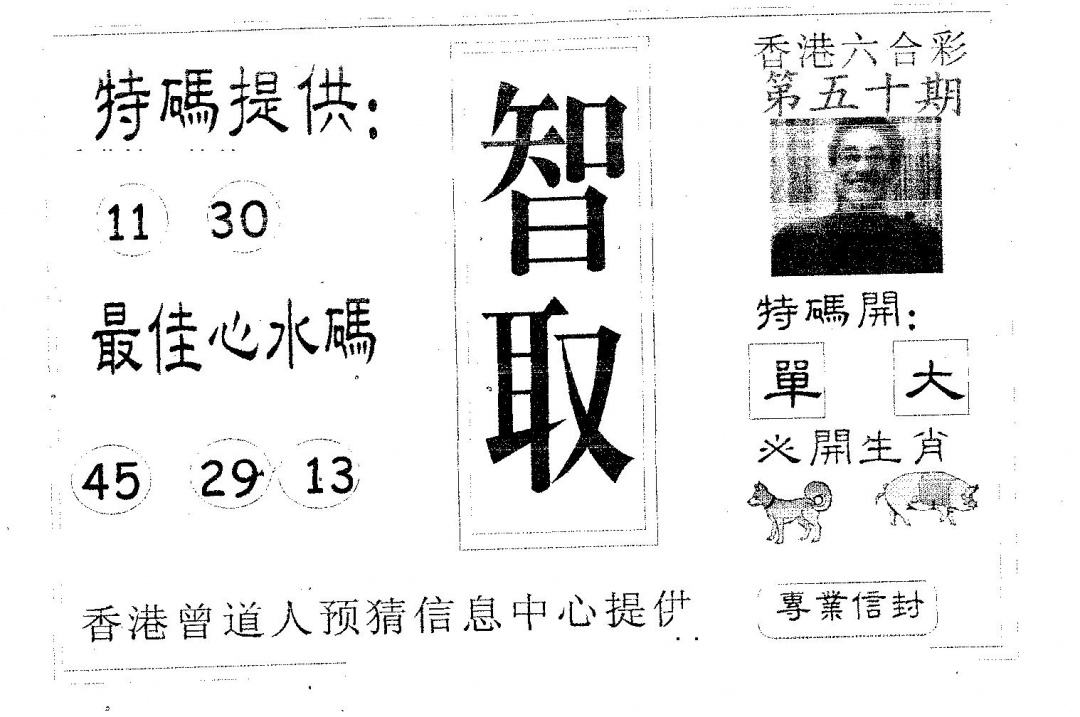 特碼提供:
11 30
最佳心水碼
45 29 13
智取
香港六合彩
第五十期
特碼開:
單 大
必開生肖
專業信封
香港曾道人预猜信息中心提供